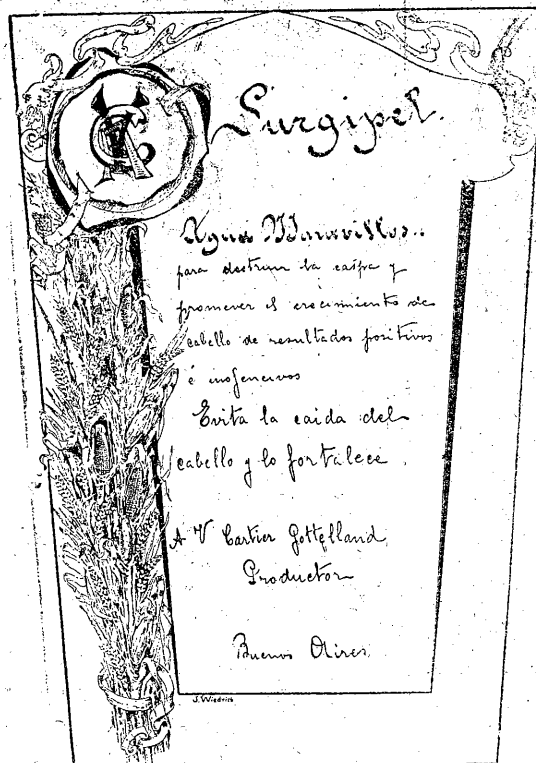 Surgipel.
Agua Maravillos..
para destruir la caspa y
promever el crecimiento de
cabello de resultados positivos
é inofencivos
Evita la caida del
cabello y lo fortalece
A V Cartier Gottelland
Productor
Buenos Aires
J. Wiedrich